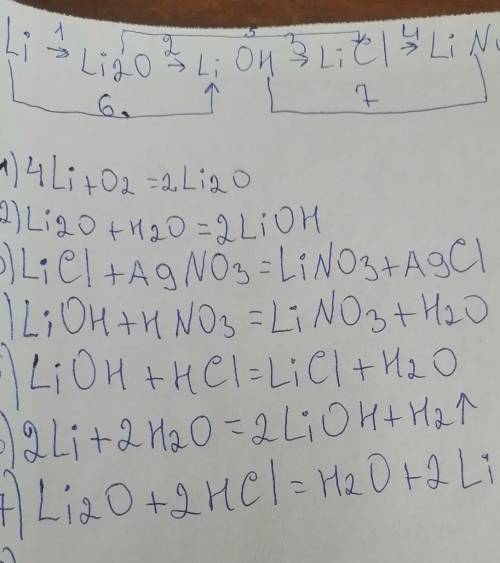 Li 1→ Li2O 2→ Li OH 3→ LiCl 4→ Li N
5
6. 7
1) 4Li + O2 = 2Li2O
2) Li2O + H2O = 2LiOH
) LiCl + AgNO3 = LiNO3 + AgCl
) LiOH + HNO3 = LiNO3 + H2O
) LiOH + HCl = LiCl + H2O
) 2Li + 2H2O = 2LiOH + H2↑
7) Li2O + 2HCl = H2O + 2Li